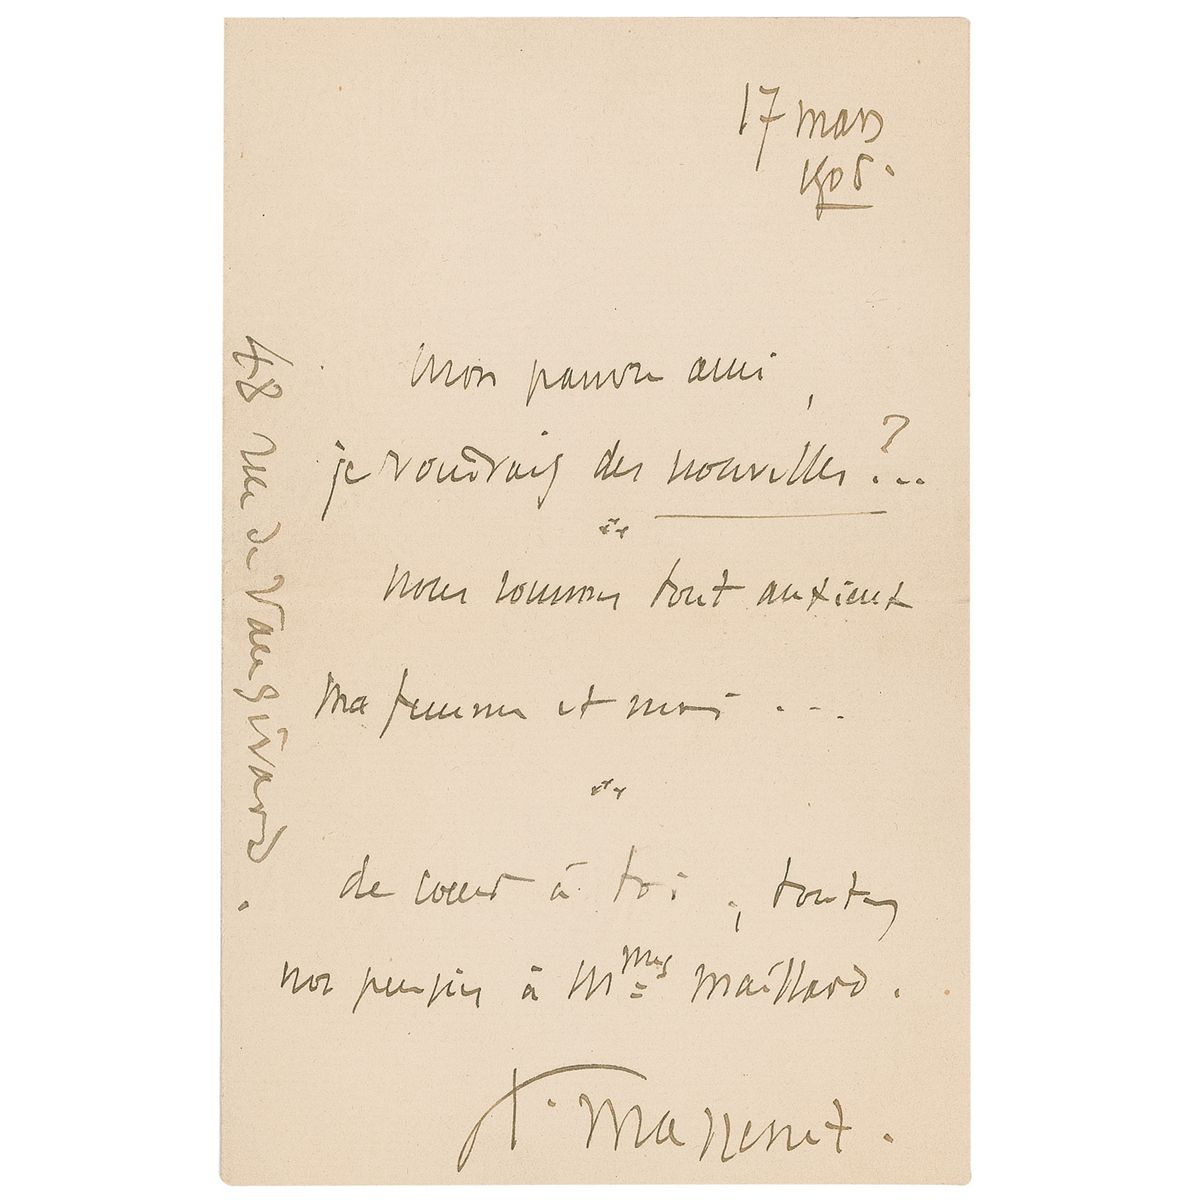 17 mars
1905.
mon pauvre ami,
je voudrais des nouvelles ?...
nous sommes tout anxieux
ma femme et moi ...
de cœur à toi ; toutes
nos pensées à Mmes Maillard.
J. Massenet.
48 rue de Vaugirard.